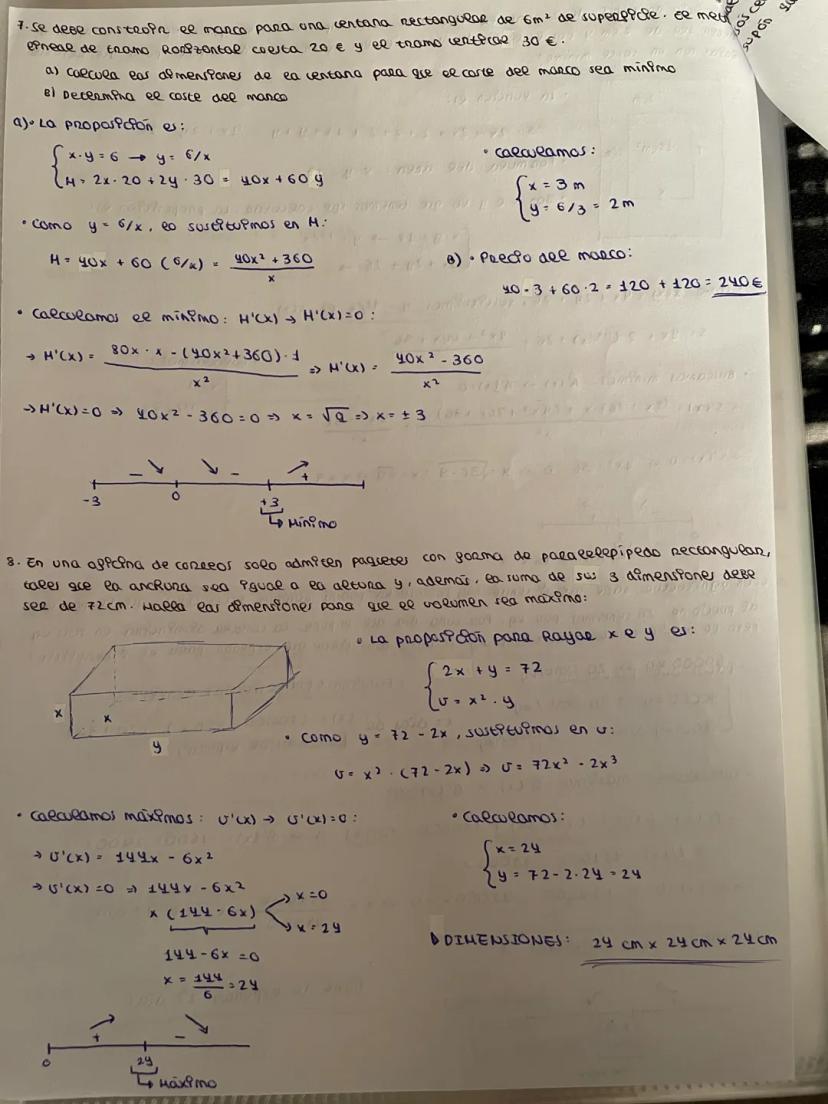 7. Se debe construir el marco para una ventana rectangular de 6m² de superficie. El metro
lineal de tramo horizontal cuesta 20 € y el tramo vertical 30 €.
a) Calcula las dimensiones de la ventana para que el coste del marco sea mínimo
B) Determina el coste del marco
a) • La proposición es:
{ x·y = 6 → y = 6/x
M = 2x · 20 + 2y · 30 = 40x + 60y
• Como y = 6/x, lo sustituimos en M:
M = 40x + 60 (6/x) = (40x² + 360)/x
• Calculamos el mínimo: M'(x) → M'(x) = 0 :
→ M'(x) = (80x · x - (40x² + 360) · 1)/x² ⇒ M'(x) = (40x² - 360)/x²
→ M'(x) = 0 ⇒ 40x² - 360 = 0 ⇒ x = √9 ⇒ x = ± 3
- ↘ ↘ - ↗ +
-3 0 +3
↳ Mínimo
• Calculamos:
{ x = 3 m
y = 6/3 = 2 m
B) • Precio del marco:
40 · 3 + 60 · 2 = 120 + 120 = 240 €
8. En una oficina de correos solo admiten paquetes con forma de paralelepípedo rectangular,
tales que la anchura sea igual a la altura y, además, la suma de sus 3 dimensiones debe
ser de 72 cm. Halla las dimensiones para que el volumen sea máximo:
x x
y
• La proposición para hallar x e y es:
{ 2x + y = 72
v = x² · y
• Como y = 72 - 2x, sustituimos en v:
v = x² · (72 - 2x) ⇒ v = 72x² - 2x³
• Calculamos máximos: v'(x) → v'(x) = 0 :
→ v'(x) = 144x - 6x²
→ v'(x) = 0 ⇒ 144x - 6x²
x (144 - 6x) x = 0
x = 24
144 - 6x = 0
x = 144/6 = 24
↗ + ↘ -
0 24
↳ Máximo
• Calculamos:
{ x = 24
y = 72 - 2 · 24 = 24
DIMENSIONES: 24 cm x 24 cm x 24 cm